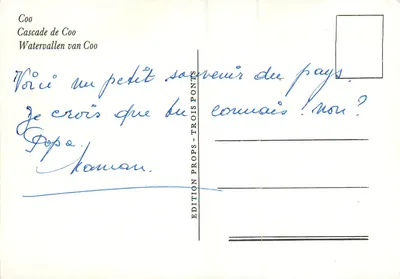 Coo
Cascade de Coo
Watervallen van Coo
Voici un petit souvenir du pays.
Je crois que tu connais ! non ?
Papa.
Maman.
EDITION PROPS - TROIS PONTS